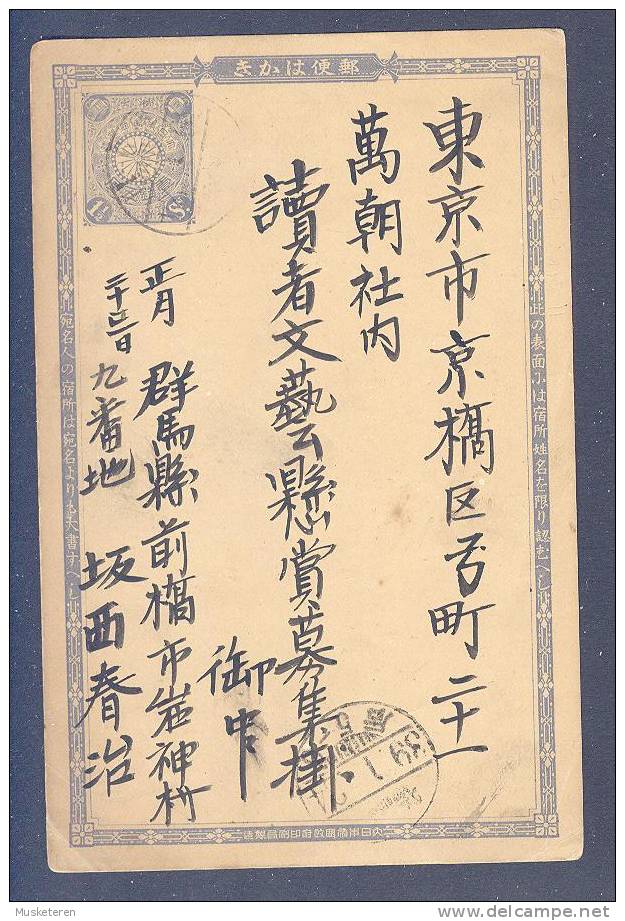 郵便はかき
此の表面には宿所姓名を限り認むへし
東京市京橋区弓町二十一
萬朝社内
讀者文藝懸賞募集掛
御中
正月
二十三日
群馬縣前橋市岩神村
九番地
坂西春治
宛名人の宿所は宛名よりも大書すへし
39 1
大日本帝國政府印刷局製造
Musketeren
delcampe.net